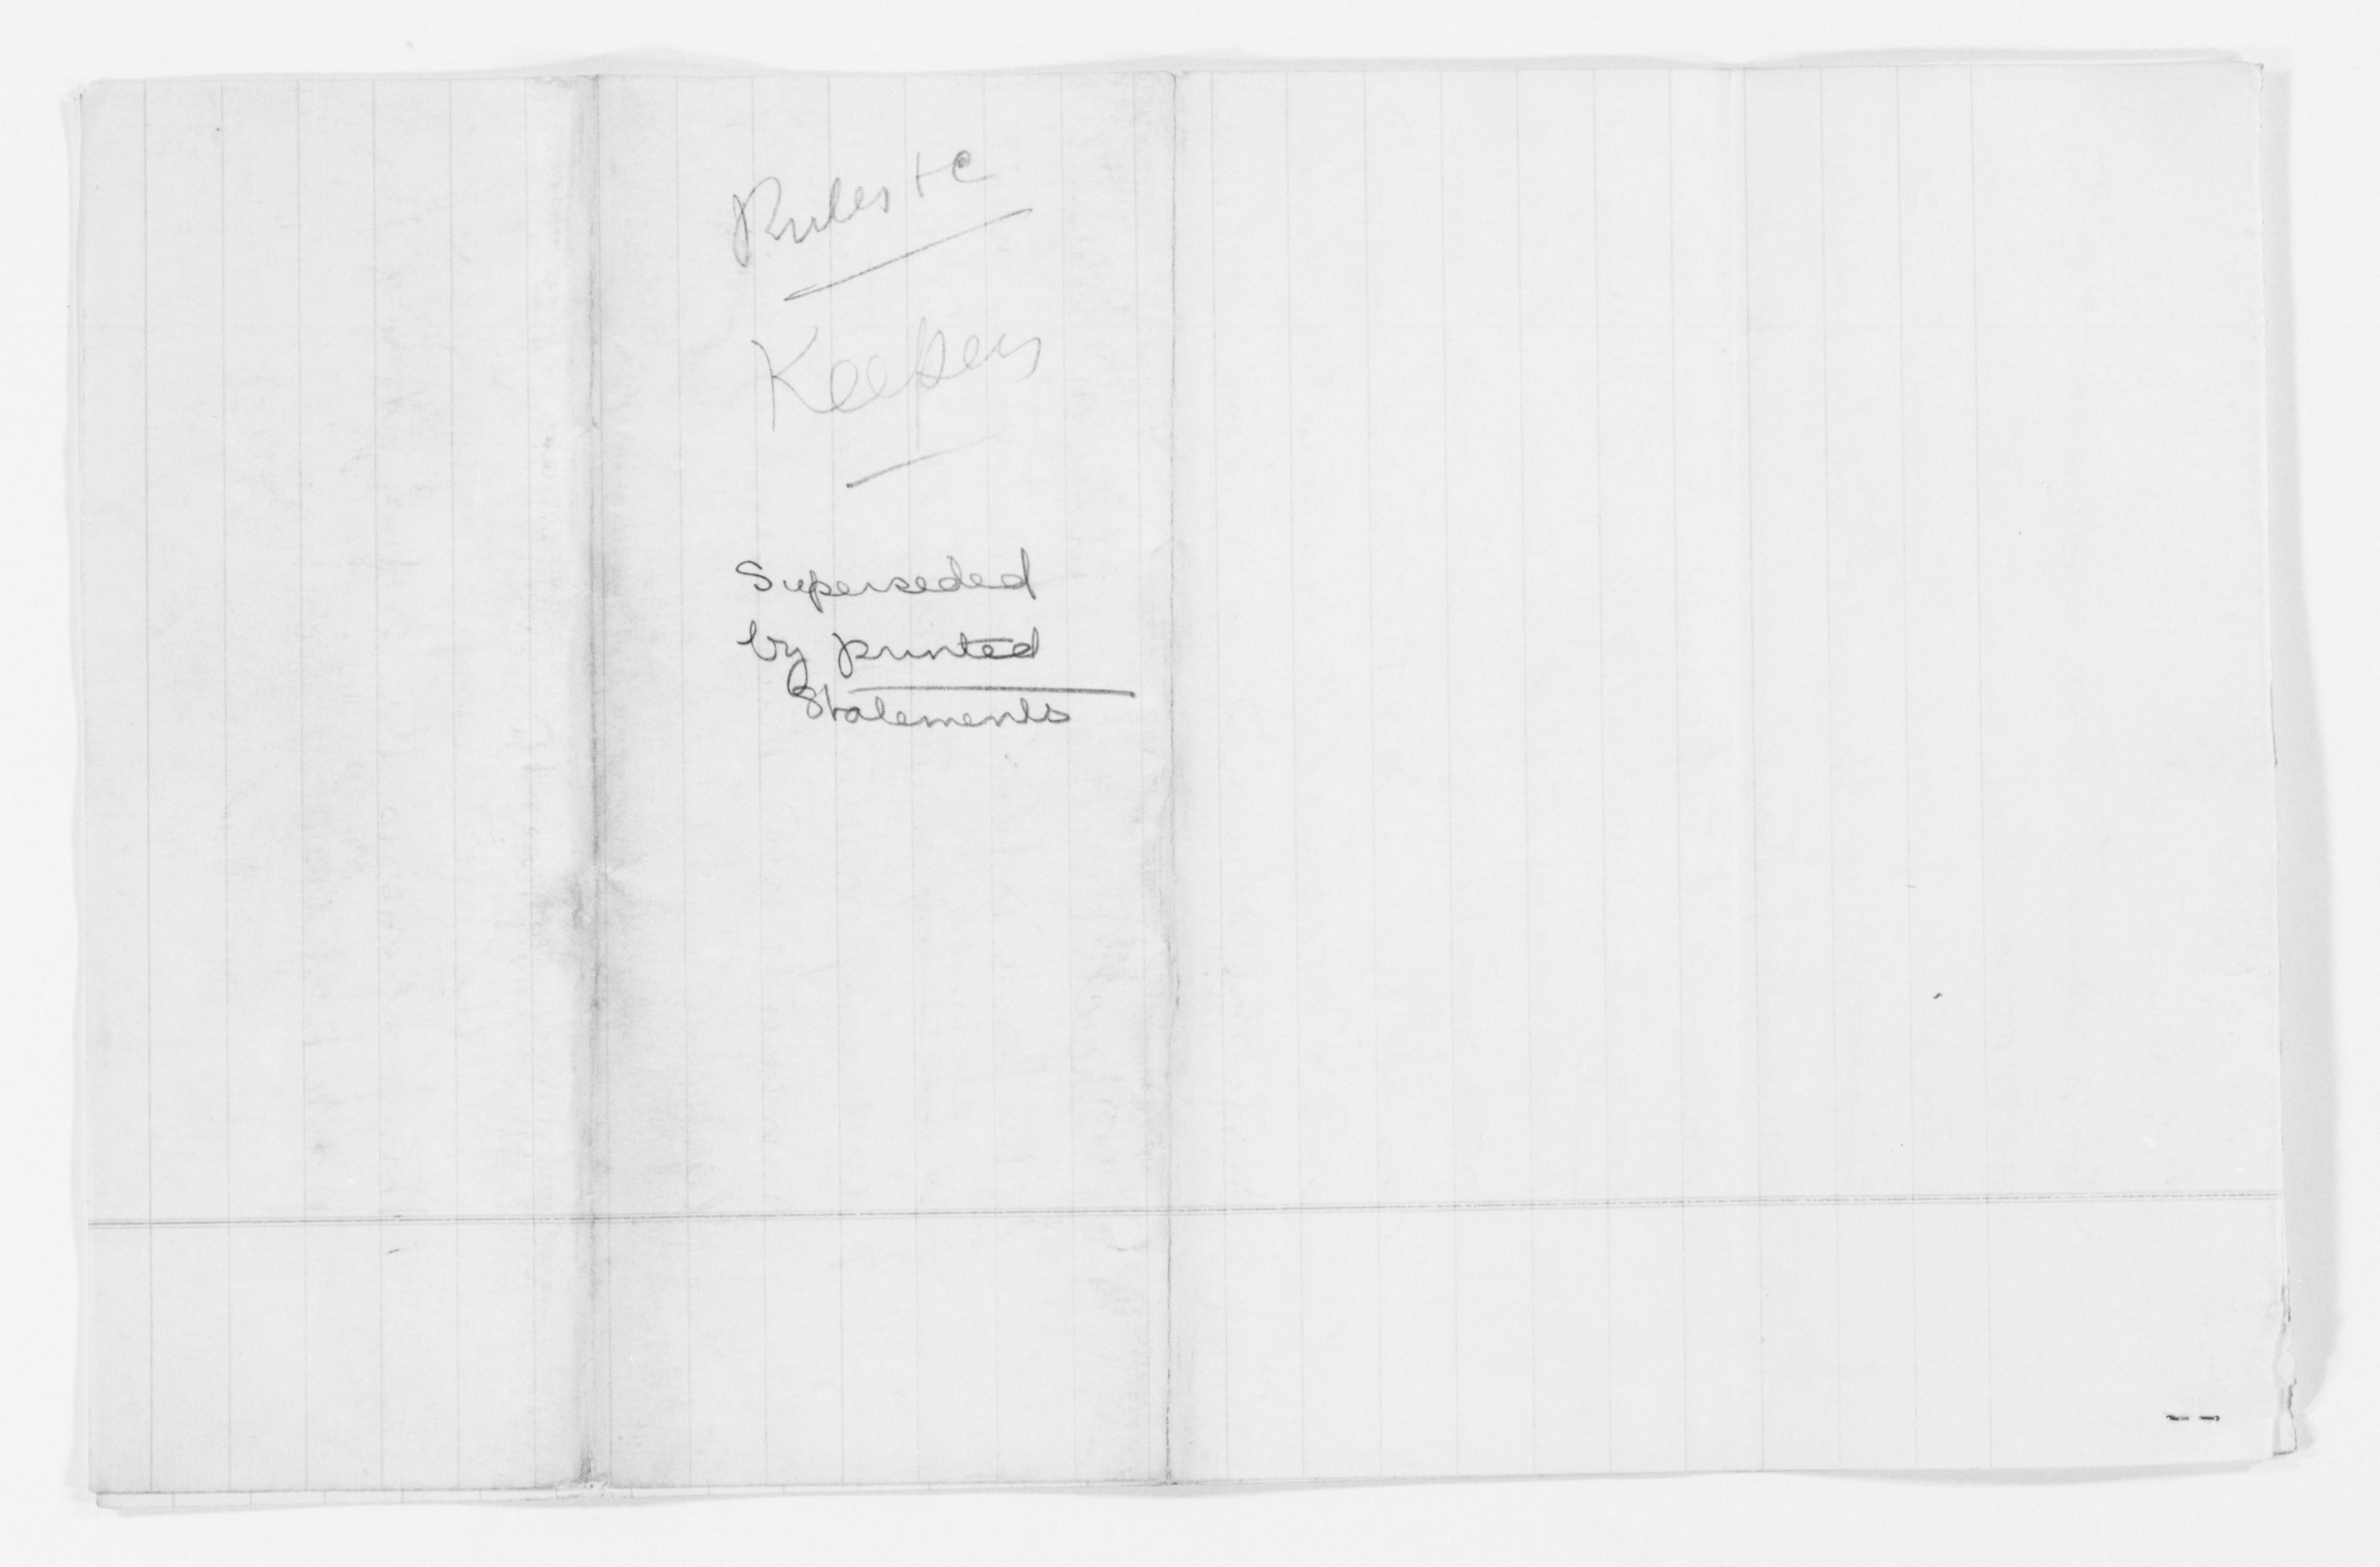 Rules &c
Keepers
Superseded
by printed
Statements